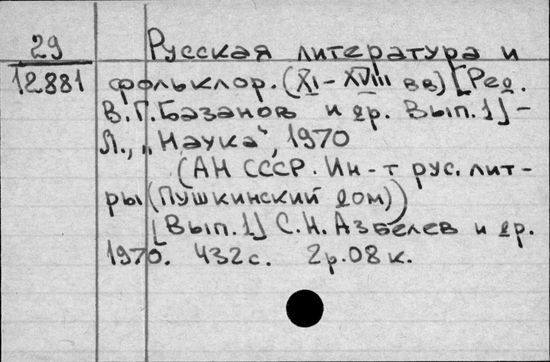 29
12881
Русская литература и
фольклор. (XI-XVIII вв) [Ред.
В.Г.Базанов и др. Вып.1] -
Л., „Наука", 1970
(АН СССР. Ин-т рус. лит-
ры (Пушкинский дом))
[Вып.1] С.Н.Азбелев и др.
1970. 432 с. 2р.08 к.